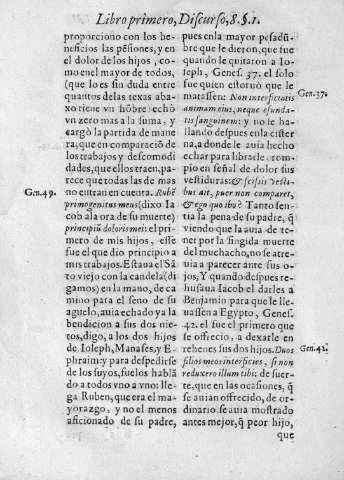 Libro primero, Discurso, 8. §. 1.
proporciono con los be-
neficios las pēsiones, y en
el dolor de los hijos, co-
mo en el mayor de todos,
(que lo es sin duda entre
quantos de las texas aba-
xo tiene vn hōbre) echò
vn zero mas a la suma, y
cargò la partida de mane
ra, que en comparaciō de
los trabajos y descomodi
dades, que ellos traen, pa-
rece que todas las de mas
no entran en cuenta. Rubē
primogenitus meus (dixo Ia
cob ala ora de su muerte)
principiū doloris mei: el pri
mero de mis hijos, esse
fue el que dio principio a
mis trabajos. Estaua el Sā
to viejo con la candela (di
gamos) en la mano, de ca
mino para el seno de su
aguelo, auia echado ya la
bendicion a sus dos nie-
tos, digo, a los dos hijos
de Ioseph, Manases, y E-
phraim: y para despedirse
de los suyos, fuelos hablā
do a todos vno a vno: lle-
ga Ruben, que era el ma-
yorazgo, y no el menos
aficionado de su padre,
Gen. 49.
pues en la mayor pesadū-
bre que le dieron, que fue
quando le quitaron a Io-
seph, Genes. 37. el solo
fue quien estoruò que le
matassen: Non interficiatis
animam eius, neque efunda-
tis sanguinem: y no le ha-
llando despues en la cister
na, a donde le auia hecho
echar para librarle, rom-
pio en señal de dolor sus
vestiduras: & scissis vesti-
bus ait, puer non comparet,
& ego quo ibo? Tanto sen-
tia la pena de su padre, q̄
viendo que la auia de te-
ner por la fingida muerte
del muchacho, no se atre-
uia a parecer ante sus o-
jos, Y quando despues re-
husaua Iacob el darles a
Benjamin para que le lle-
uassen a Egypto, Genes.
42. el fue el primero que
se offrecio, a dexarle en
rehenes sus dos hijos. Duos
filios meos interficies, si non
reduxero illum tibi: de suer-
te, que en las ocasiones, q̄
se auian offrecido, de or-
dinario, se auia mostrado
antes mejor, q̄ peor hijo,
que
Gen. 37.
Gen. 42.